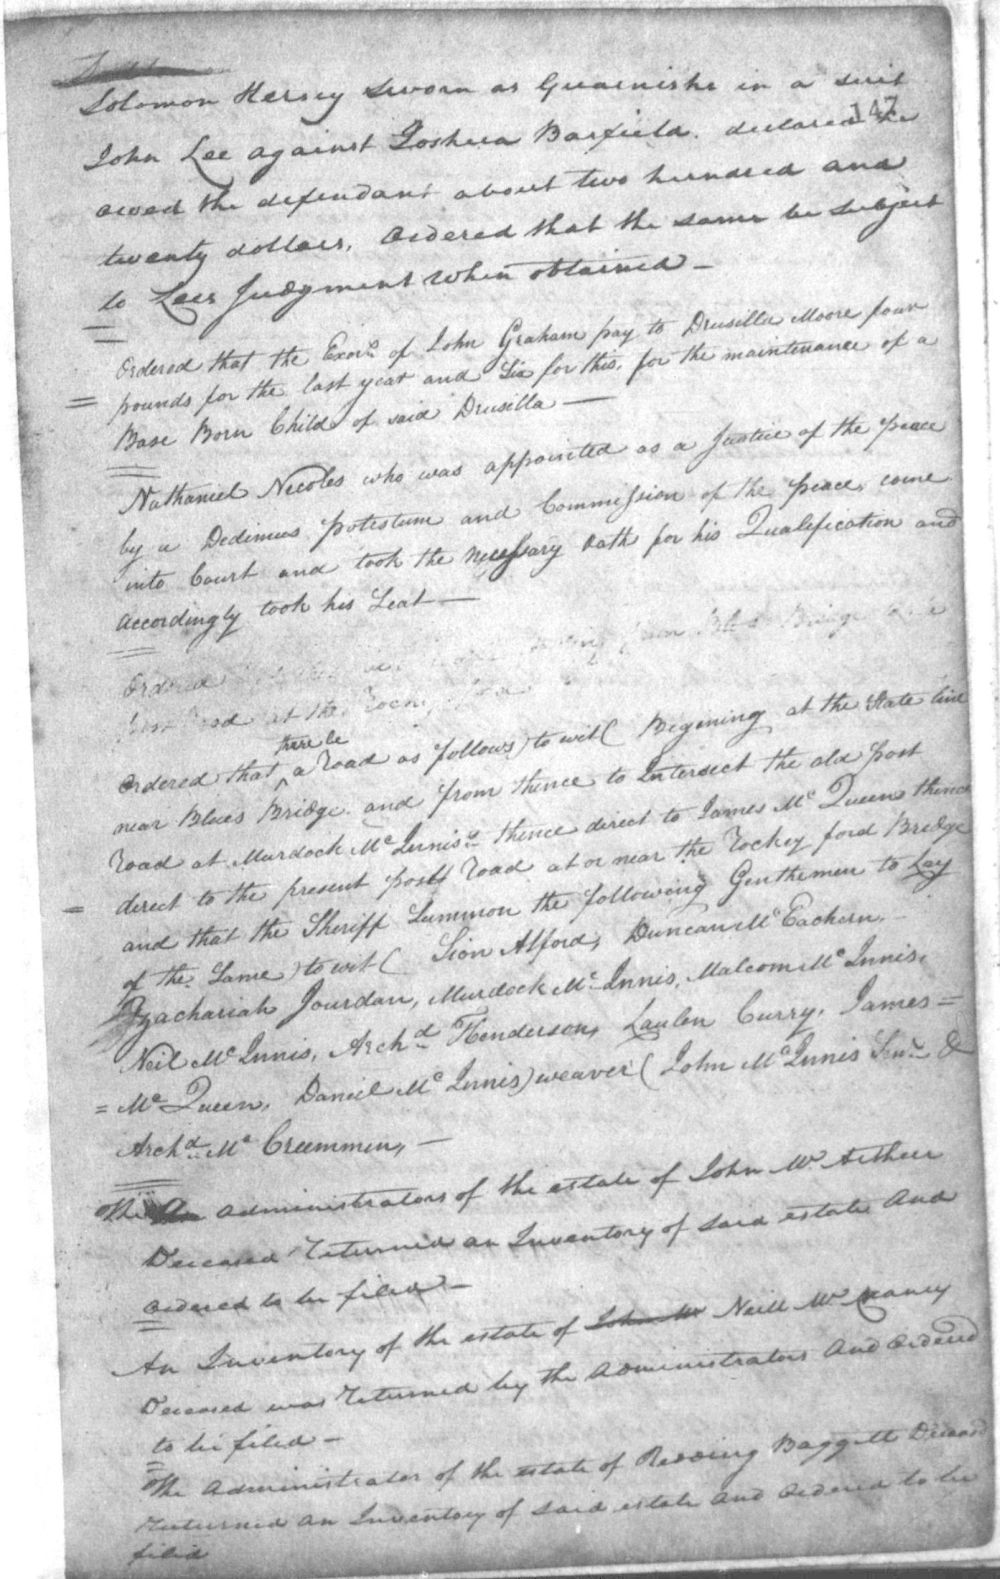 147
Solomon Hersey Sworn as Guarnishe in a suit
John Lee against Joshua Barfield. declared he
owed the defendant about two hundred and
twenty dollars, Ordered that the same be subject
to Lees Judgment when obtained —
Ordered that the Exors. of John Graham pay to Drusilla Moore four
= pounds for the last year and Six for this, for the maintenance of a
Base Born Child of said Drusilla —
Nathaniel Nicoles who was appointed as a Justice of the peace
by a Dedimus potestum and Commission of the peace, come
into Court and took the necessary Oath for his Qualification and
accordingly took his Seat —
Ordered from Blues Bridge
Post Road at the Rocky ford
there be
Ordered that ^ a Road as follows) to wit ( Begining at the State line
near Blues Bridge. and from thence to Intersect the old post
Road at Murdock Mc Innis's thence direct to James Mc Queens thence
= direct to the present post Road at or near the Rockey ford Bridge
and that the Sheriff Summon the following Genthemen to Lay
of the Same) to wit ( Sion Alford, Duncan Mc Eachern.
Zachariah Jourdan, Murdock Mc Innis, Malcom Mc Innis,
Neil Mc Innis, Archd. Henderson, Curry, James =
= Mc Queen, Daniel Mc Innis) weaver ( John Mc Innis Senr. &
Archd. Mc Creemmen, —
The administrators of the estate of John Mc Arthur
Deceased Returned an Inventory of said estate And
ordered to be filed —
An Inventory of the estate of John Mc Neill Mc
Deceased was Returned by the Administrators And Ordered
to be filed —
The Administrator of the estate of Redding Baggett Deceasd
Returned an Inventory of said estate and ordered to be
filed